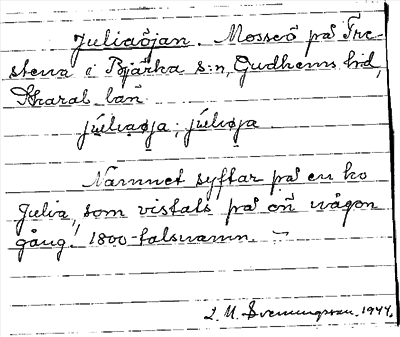 Juliaöjan. Mosseö på Fre-
stena i Bjärka s:n, Gudhems hd,
Skarab. län
júliaøja, júliøja
Namnet syftar på en ko
Julia, som vistats på ön någon
gång. 1800-talsnamn. –
L. M. Svenungsson. 1944.